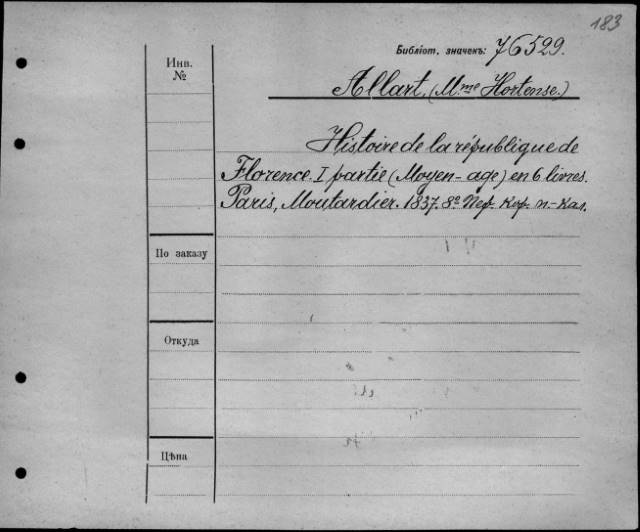 183
Библіот. значекъ: 76529.
Инв.
№
Allart, (Mme Hortense.)
Histoire de la république de
Florence. I partie (Moyen-age) en 6 livres.
Paris, Moutardier. 1837. 8º Пер. кор. п.-кал.
По заказу
Откуда
Цѣна